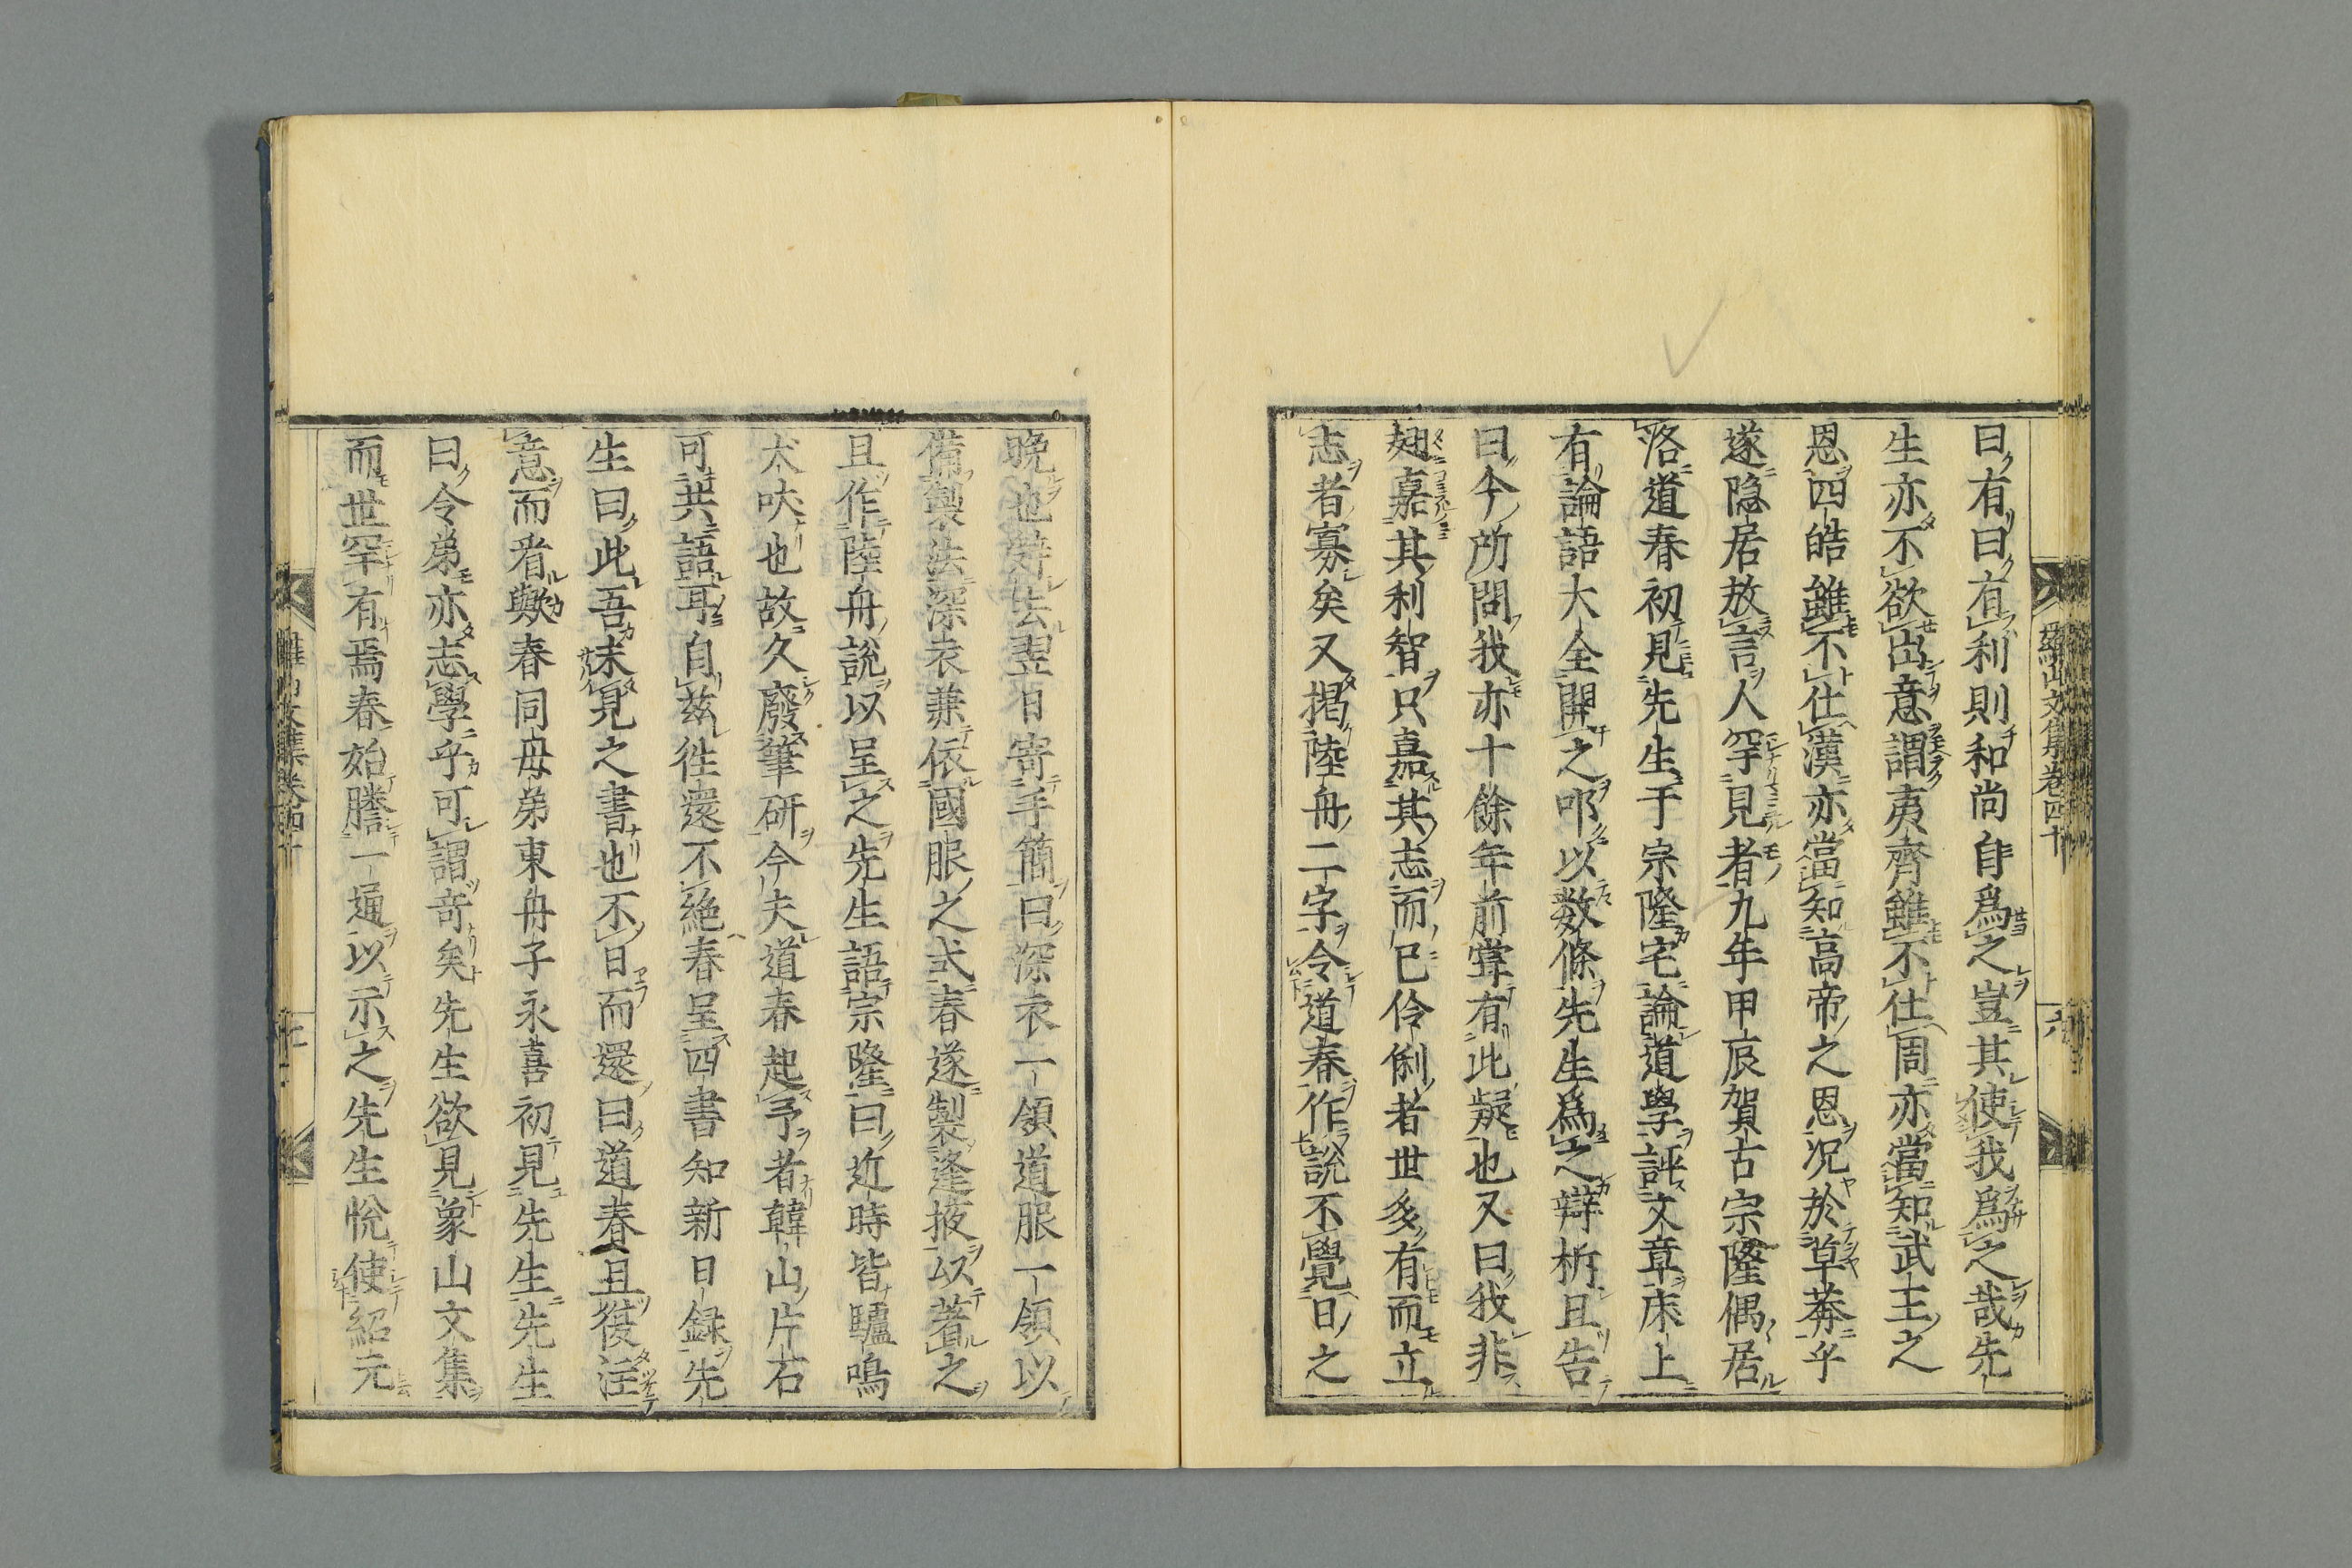 曰有曰有利則和尚自爲之豈其使我爲之哉先
生亦不欲出意謂夷齊雖不仕周亦當知武王之
恩四皓雖不仕漢亦當知高帝之恩况於草莽乎
遂隐居放言人罕見者九年甲辰賀古宗隆偶居
洛道春初見先生于宗隆宅論道學評文章床上
有論語大全開之叩以数條先生爲之辯析且告
曰今所問我亦十餘年前甞有此疑也又曰我非
翅嘉其利智只嘉其志而已伶俐者世多有而立
志者寡矣又揭陸舟二字令道春作說不覺日之
羅山文集卷四十
六
晩也辞去翌日寄手簡曰深衣一領道服一領以
備製法深衣兼依國服之式春遂製逢掖以著之
且作陸舟說以呈之先生語宗隆曰近時皆驢鳴
犬吠也故久廢筆研今夫道春起予者韓山片石
可共語耳自兹徃還不絶春呈四書知新日録先
生曰此吾未見之書也不日而還曰道春且復注
意而看歟春同母弟東舟子永喜初見先生先生
曰令弟亦志學乎可謂奇矣先生欲見象山文集
而世罕有焉春始謄一通以示之先生悅使紹元
羅山文集卷四十
七